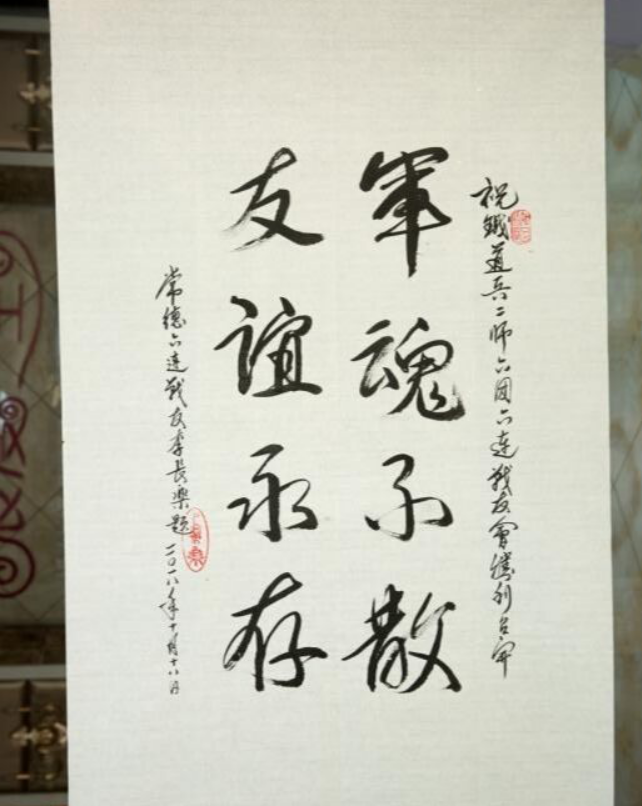 祝鐵道兵二师六团六连戰友會勝利召開
軍魂不散
友誼永存
常德六连戰友李長樂题
二〇一八年十月十八日